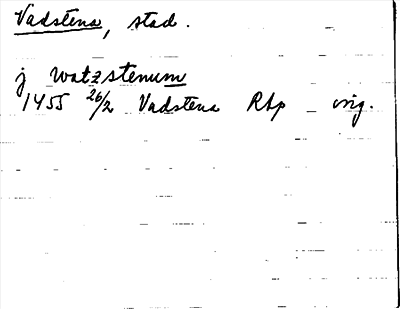 Vadstena, stad.
j watzstenum
1455 26/2 Vadstena RAp orig.